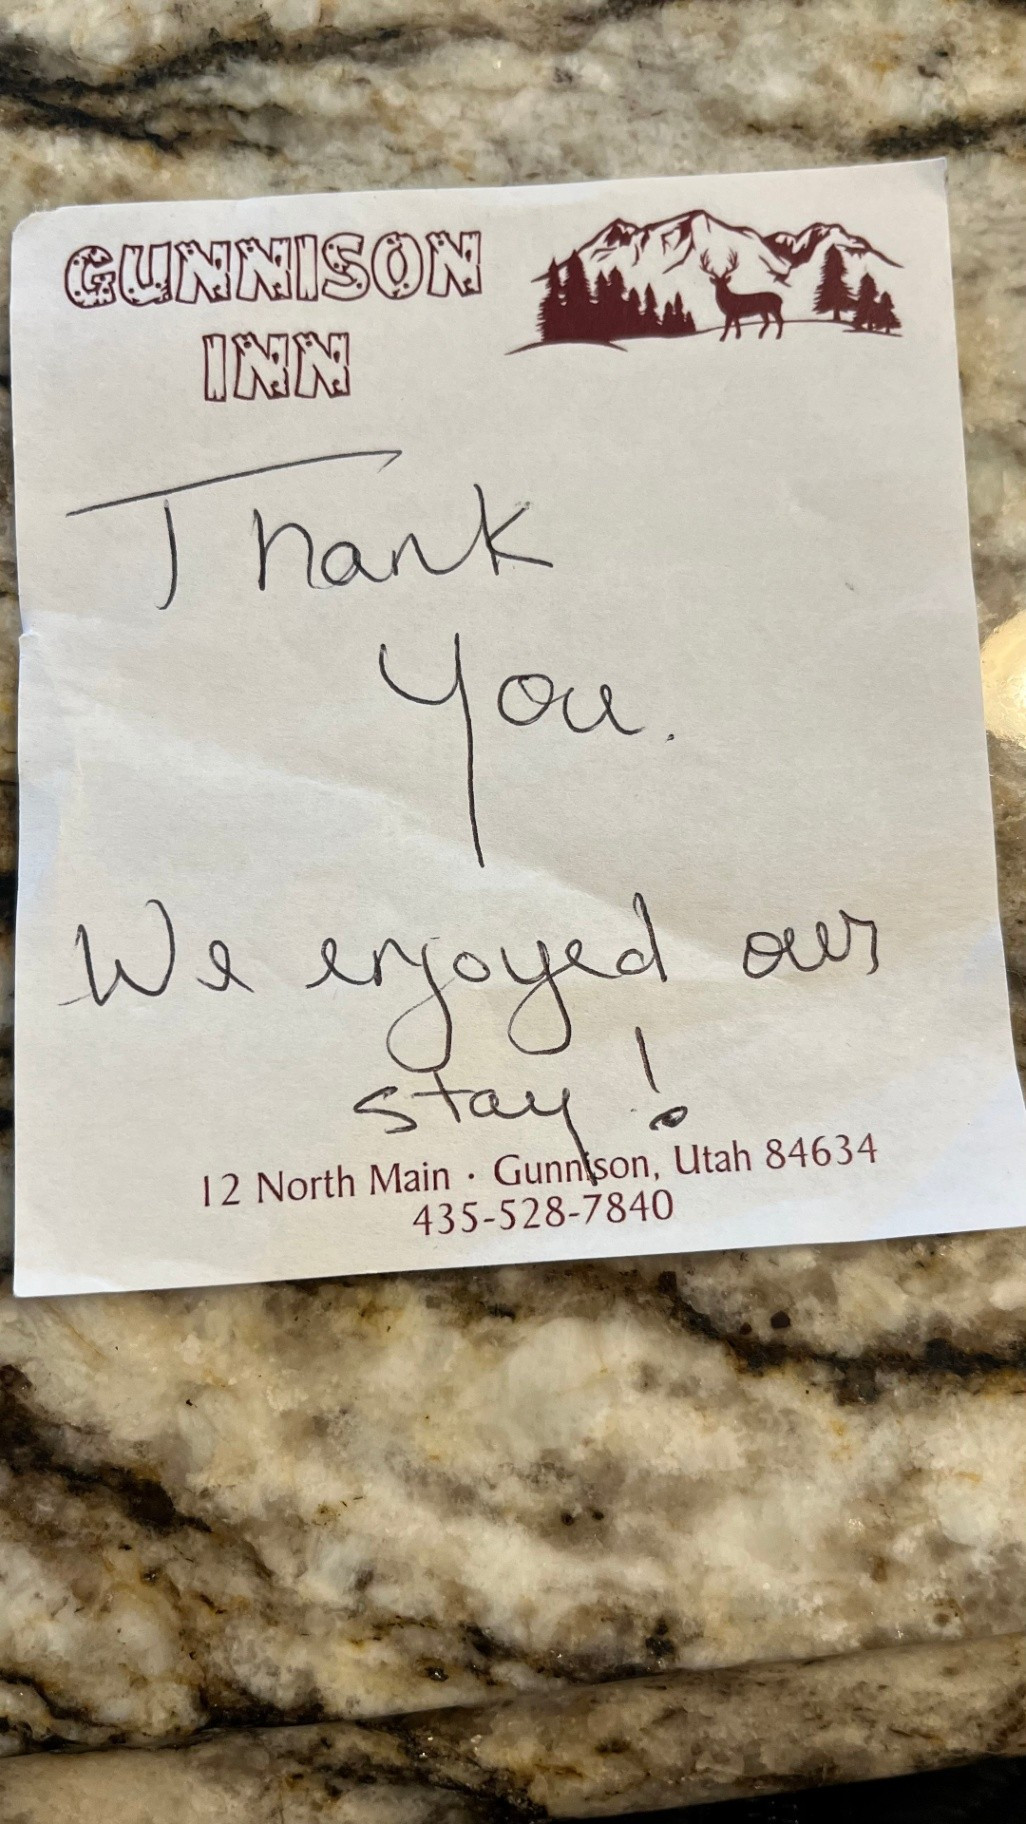 GUNNISON
INN
Thank
you.
We enjoyed our
stay!
12 North Main · Gunnison, Utah 84634
435-528-7840